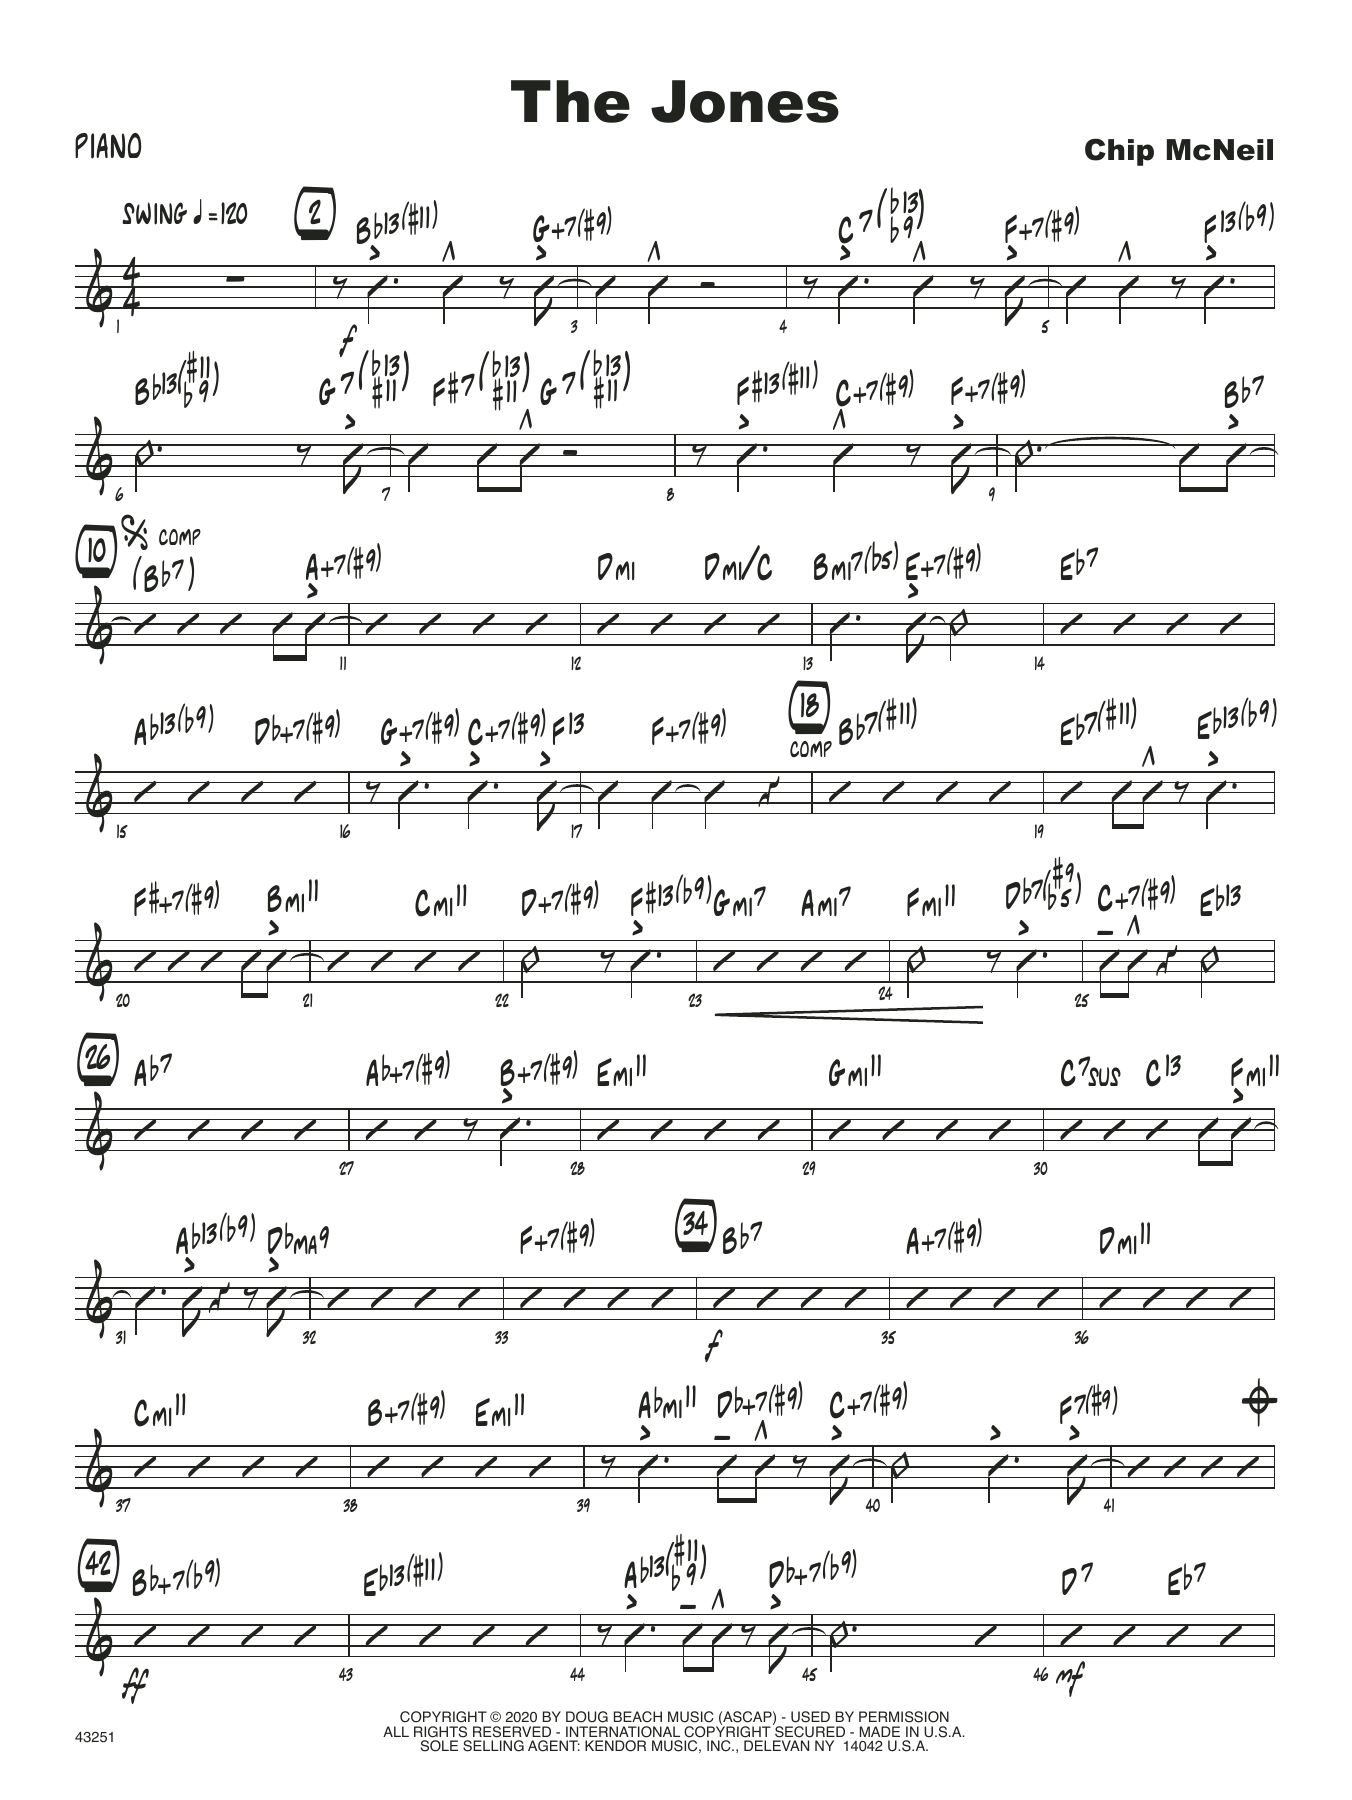 The Jones
PIANO
Chip McNeil
SWING ♩=120
2 B♭13(♯11) G+7(♯9) C7(♭13 ♭9) F+7(♯9) F13(♭9)
1 3 4 5
f
B♭13(♯11 ♭9) G7(♭13 ♯11) F♯7(♭13 ♯11) G7(♭13 ♯11) F♯13(♯11) C+7(♯9) F+7(♯9) B♭7
6 7 8 9
10 COMP
(B♭7) A+7(♯9) DMI DMI/C BMI7(♭5) E+7(♯9) E♭7
11 12 13 14
A♭13(♭9) D♭+7(♯9) G+7(♯9) C+7(♯9) F13 F+7(♯9) 18 COMP B♭7(♯11) E♭7(♯11) E♭13(♭9)
15 16 17 19
F♯+7(♯9) BMI11 CMI11 D+7(♯9) F♯13(♭9) GMI7 AMI7 FMI11 D♭7(♯9 ♭5) C+7(♯9) E♭13
20 21 22 23 24 25
26 A♭7 A♭+7(♯9) B+7(♯9) EMI11 GMI11 C7SUS C13 FMI11
27 28 29 30
A♭13(♭9) D♭MA9 F+7(♯9) 34 B♭7 A+7(♯9) DMI11
31 32 33 35 36
f
CMI11 B+7(♯9) EMI11 A♭MI11 D♭+7(♯9) C+7(♯9) F7(♯9)
37 38 39 40 41
42 B♭+7(♭9) E♭13(♯11) A♭13(♯11 ♭9) D♭+7(♭9) D7 E♭7
43 44 45 46
ff mf
COPYRIGHT © 2020 BY DOUG BEACH MUSIC (ASCAP) - USED BY PERMISSION
43251
ALL RIGHTS RESERVED - INTERNATIONAL COPYRIGHT SECURED - MADE IN U.S.A.
SOLE SELLING AGENT: KENDOR MUSIC, INC., DELEVAN NY 14042 U.S.A.